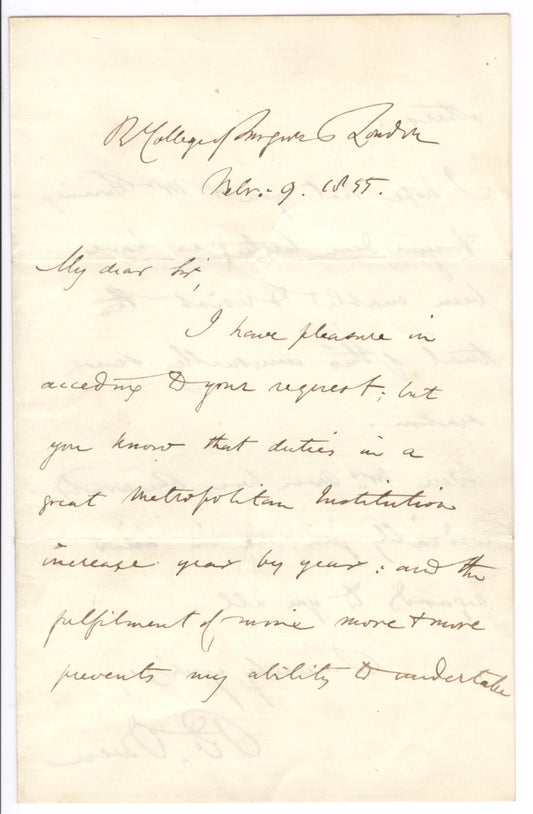 R College of Surgeons London
Febr. 9. 1855.
My dear Sir,
I have pleasure in
acceding to your request; but
you know that duties in a
great Metropolitan Institution
increase year by year: and the
fulfilment of mine more & more
prevents my ability to undertake